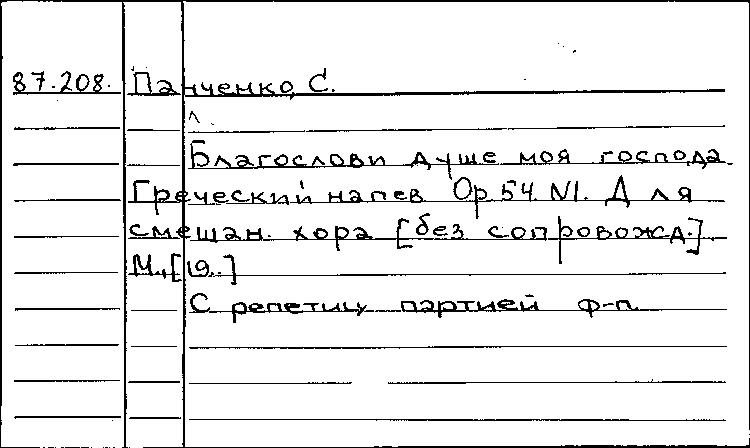 87.208. Панченко, С.
Благослови душе моя господа.
Греческий напев Ор. 54. N1. Для
смешан. хора [без сопровожд.].
М., [19..]
С репетиц партией ф-п.